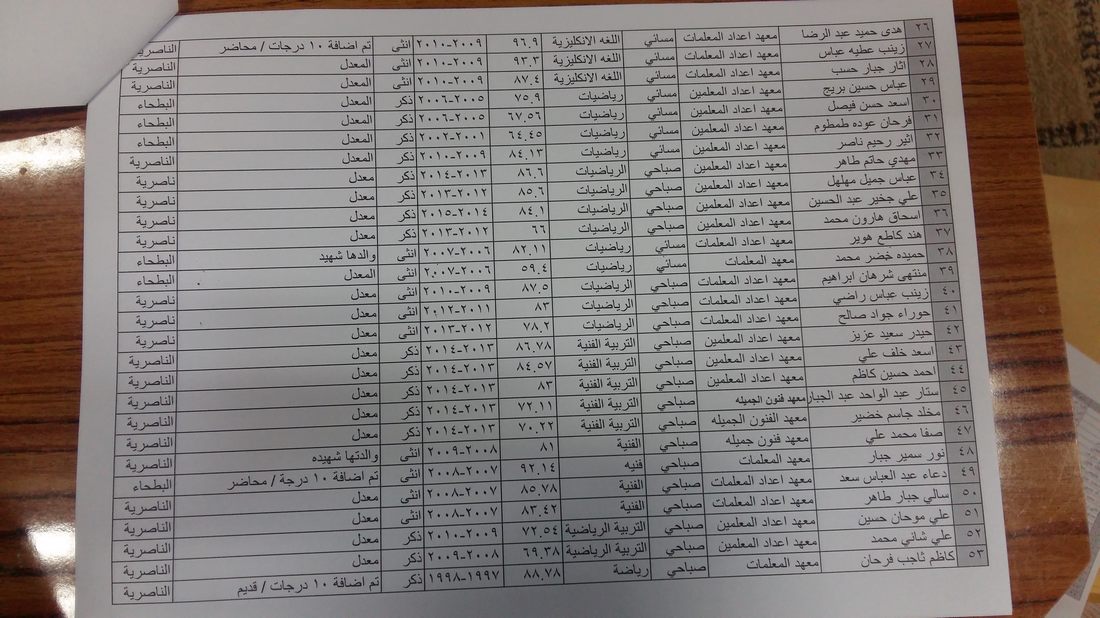 ٢٦ هدى حميد عبد الرضا معهد اعداد المعلمات مسائي اللغه الانكليزية ٩٦.٩ ٢٠٠٩-٢٠١٠ انثى تم اضافة ١٠ درجات / محاضر الناصرية
٢٧ زينب عطيه عباس معهد اعداد المعلمات مسائي اللغه الانكليزية ٩٣.٣ ٢٠٠٩-٢٠١٠ انثى المعدل الناصرية
٢٨ اثار جبار حسب معهد اعداد المعلمات مسائي اللغه الانكليزية ٨٧.٤ ٢٠٠٩-٢٠١٠ انثى المعدل الناصرية
٢٩ عباس حسين بريج معهد اعداد المعلمين مسائي رياضيات ٧٥.٩ ٢٠٠٥-٢٠٠٦ ذكر المعدل البطحاء
٣٠ اسعد حسن فيصل معهد اعداد المعلمين مسائي رياضيات ٦٧.٥٦ ٢٠٠٥-٢٠٠٦ ذكر المعدل البطحاء
٣١ فرحان عوده طمطوم معهد اعداد المعلمين مسائي رياضيات ٦٤.٤٥ ٢٠٠١-٢٠٠٢ ذكر المعدل البطحاء
٣٢ اثير رحيم ناصر معهد اعداد المعلمين مسائي رياضيات ٨٤.١٣ ٢٠٠٩-٢٠١٠ ذكر المعدل الناصرية
٣٣ مهدي حاتم طاهر معهد اعداد المعلمين صباحي الرياضيات ٨٦.٦ ٢٠١٣-٢٠١٤ ذكر معدل ناصرية
٣٤ عباس جميل مهلهل معهد اعداد المعلمين صباحي الرياضيات ٨٥.٦ ٢٠١٢-٢٠١٣ ذكر معدل ناصرية
٣٥ علي جخير عبد الحسين معهد اعداد المعلمين صباحي الرياضيات ٨٤.١ ٢٠١٤-٢٠١٥ ذكر معدل ناصرية
٣٦ اسحاق هارون محمد معهد اعداد المعلمين صباحي الرياضيات ٦٦ ٢٠١٢-٢٠١٣ ذكر معدل ناصرية
٣٧ هند كاطع هوير معهد اعداد المعلمات مسائي رياضيات ٨٢.١١ ٢٠٠٦-٢٠٠٧ انثى والدها شهيد البطحاء
٣٨ حميده خضر محمد معهد المعلمات مسائي رياضيات ٥٩.٤ ٢٠٠٦-٢٠٠٧ انثى المعدل البطحاء
٣٩ منتهى شرهان ابراهيم معهد اعداد المعلمات صباحي الرياضيات ٨٧.٥ ٢٠٠٩-٢٠١٠ انثى معدل ناصرية
٤٠ زينب عباس راضي معهد اعداد المعلمات صباحي الرياضيات ٨٣ ٢٠١١-٢٠١٢ انثى معدل ناصرية
٤١ حوراء جواد صالح معهد اعداد المعلمات صباحي الرياضيات ٧٨.٢ ٢٠١٢-٢٠١٣ انثى معدل ناصرية
٤٢ حيدر سعيد عزيز معهد اعداد المعلمين صباحي التربية الفنية ٨٦.٧٨ ٢٠١٣-٢٠١٤ ذكر معدل الناصرية
٤٣ اسعد خلف علي معهد اعداد المعلمين صباحي التربية الفنية ٨٤.٥٧ ٢٠١٣-٢٠١٤ ذكر معدل الناصرية
٤٤ احمد حسين كاظم معهد اعداد المعلمين صباحي التربية الفنية ٨٣ ٢٠١٣-٢٠١٤ ذكر معدل الناصرية
٤٥ ستار عبد الواحد عبد الجبار معهد فنون الجميله صباحي التربية الفنية ٧٢.١١ ٢٠١٣-٢٠١٤ ذكر معدل الناصرية
٤٦ مخلد جاسم خضير معهد الفنون الجميله صباحي التربية الفنية ٧٠.٢٢ ٢٠١٣-٢٠١٤ ذكر معدل الناصرية
٤٧ صفا محمد علي معهد فنون جميله صباحي الفنية ٨١ ٢٠٠٨-٢٠٠٩ انثى والدتها شهيده الناصرية
٤٨ نور سمير جبار معهد المعلمات صباحي فنيه ٩٢.١٤ ٢٠٠٧-٢٠٠٨ انثى تم اضافة ١٠ درجة / محاضر البطحاء
٤٩ دعاء عبد العباس سعد معهد اعداد المعلمات صباحي الفنية ٨٥.٧٨ ٢٠٠٧-٢٠٠٨ انثى معدل الناصرية
٥٠ سالي جبار طاهر معهد اعداد المعلمات صباحي الفنية ٨٣.٤٢ ٢٠٠٧-٢٠٠٨ انثى معدل الناصرية
٥١ علي موحان حسين معهد اعداد المعلمين صباحي التربية الرياضية ٧٢.٥٤ ٢٠٠٩-٢٠١٠ ذكر معدل الناصرية
٥٢ علي شاني محمد معهد اعداد المعلمين صباحي التربية الرياضية ٦٩.٣٨ ٢٠٠٨-٢٠٠٩ ذكر معدل الناصرية
٥٣ كاظم ثاجب فرحان معهد المعلمات صباحي رياضة ٨٨.٧٨ ١٩٩٧-١٩٩٨ ذكر تم اضافة ١٠ درجات / قديم الناصرية